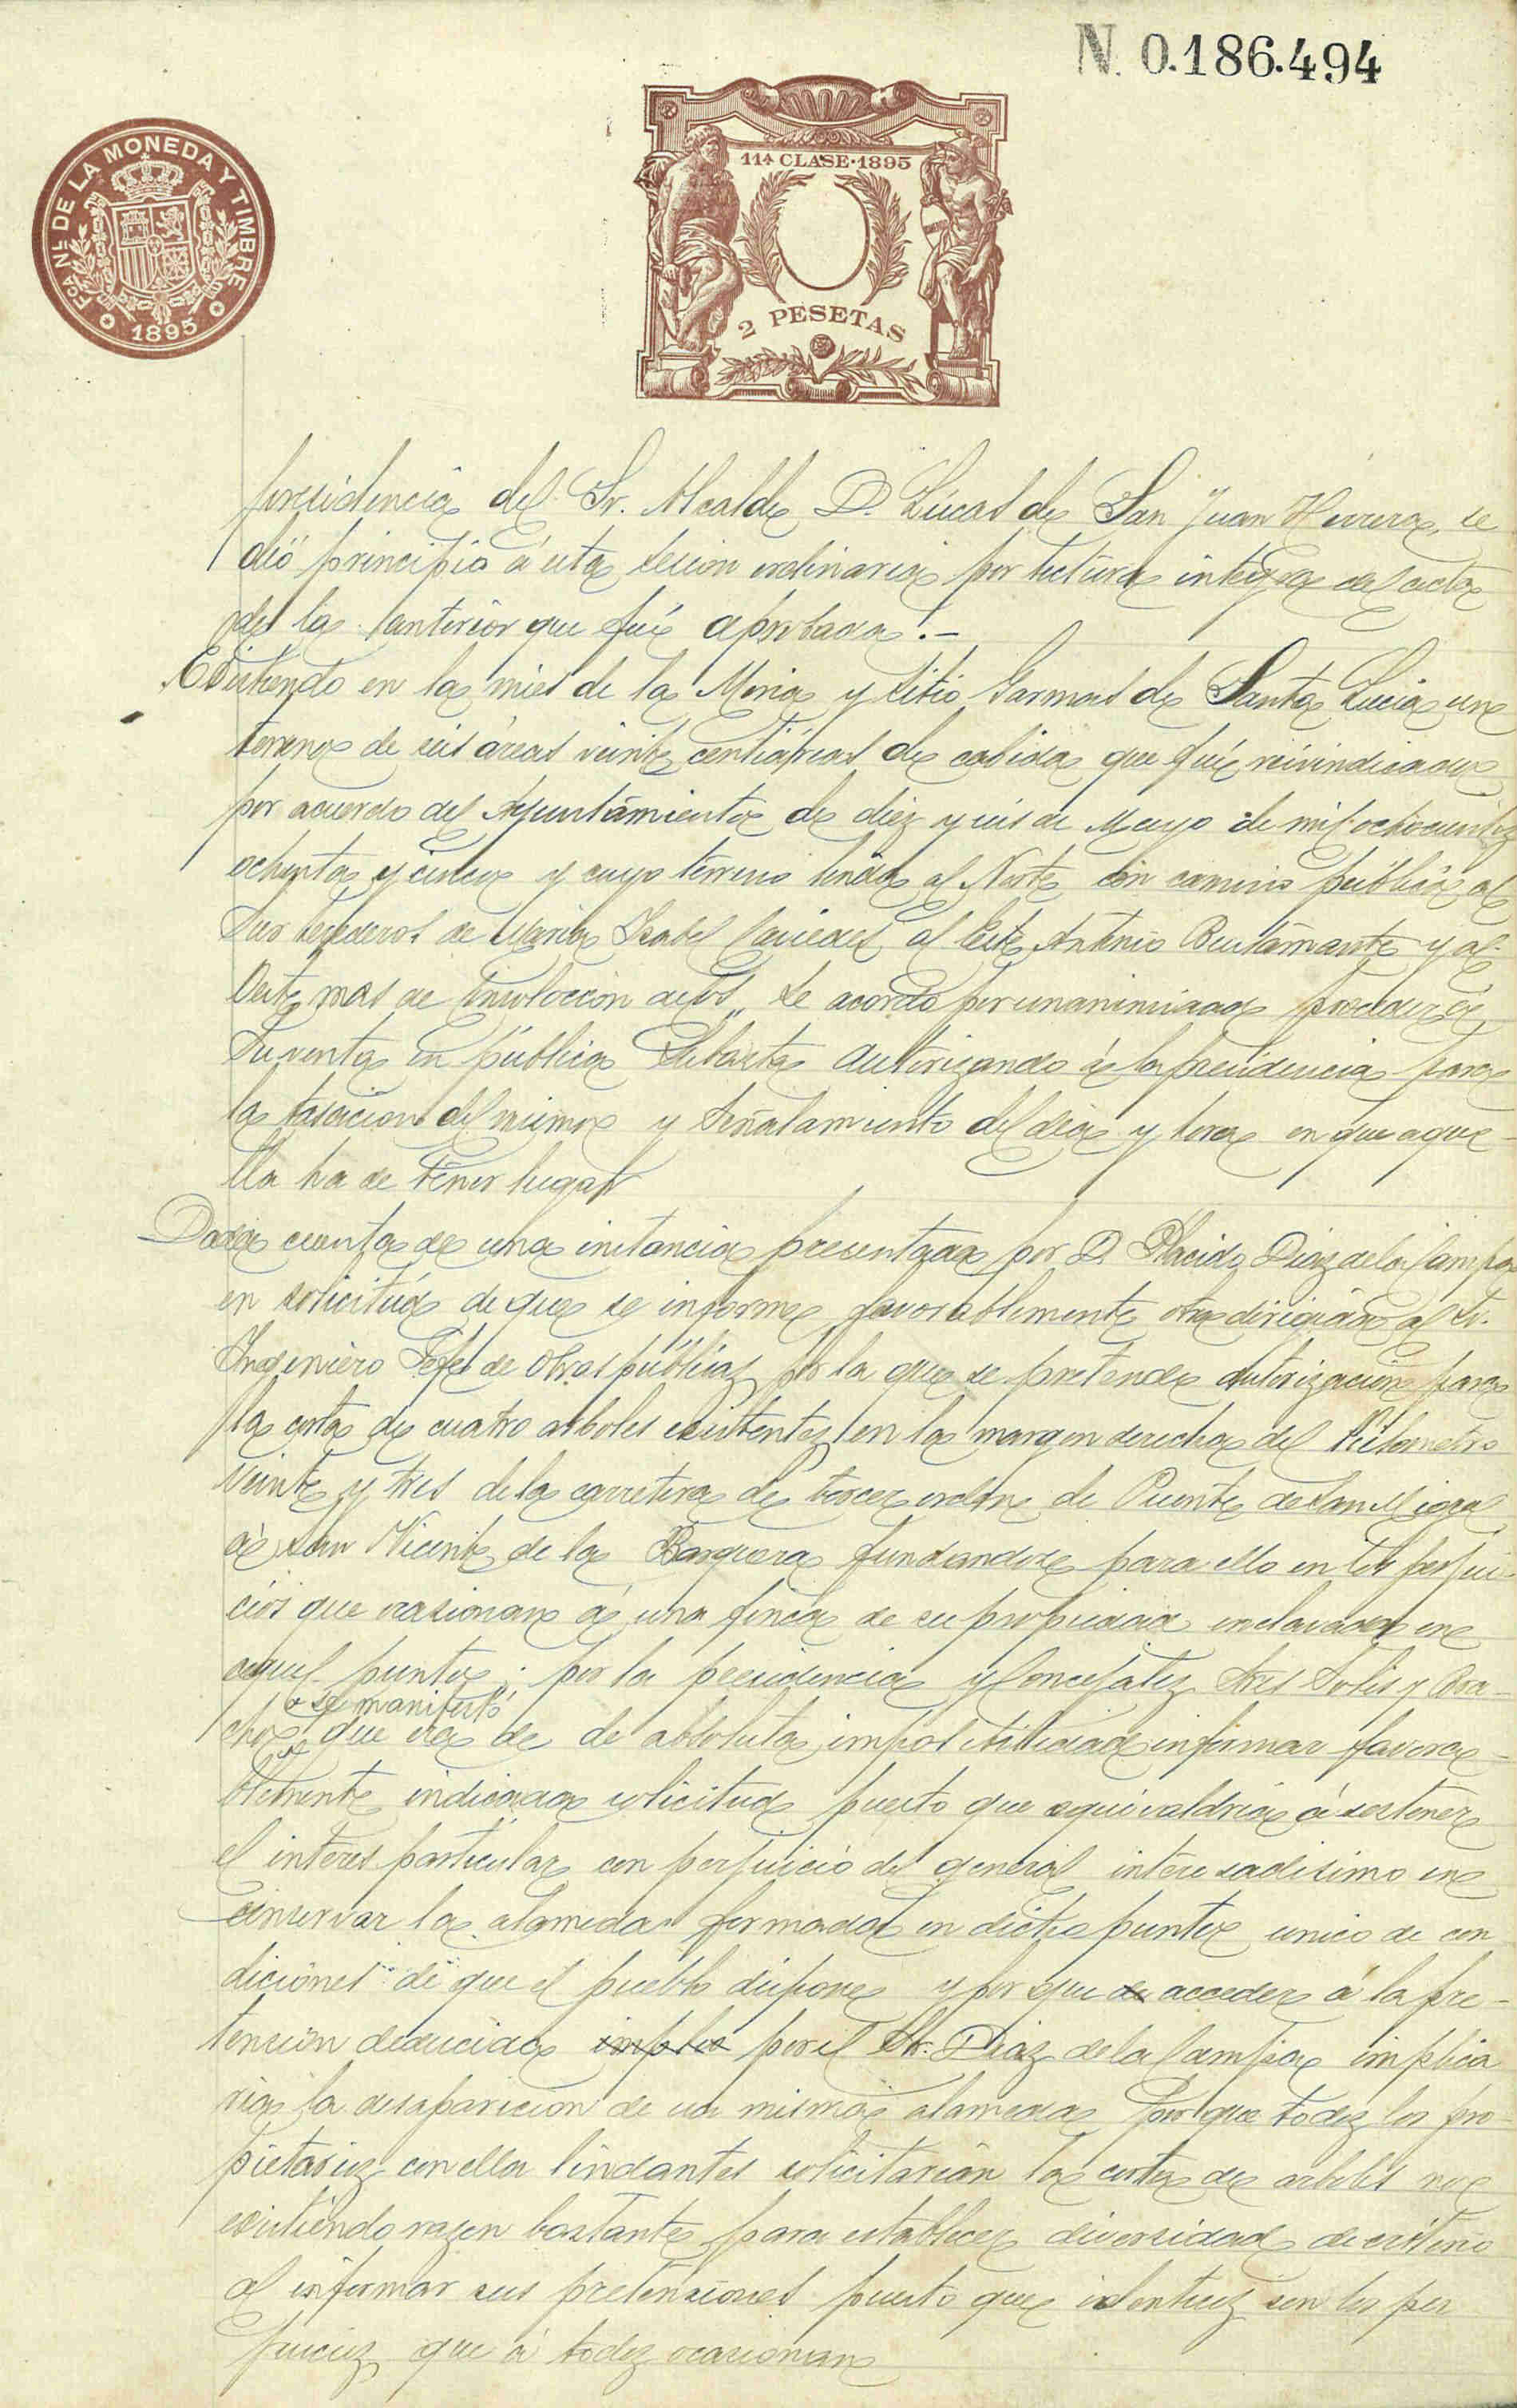 N. 0.186.494
FCA NL DE LA MONEDA Y TIMBRE
1895
11ª CLASE · 1895
2 PESETAS
presidencia del Sr. Alcalde D. Lúcas de San Juan Herrera, se
dió principio á esta sesion ordinaria por lectura integra del acta
de la anterior que fué aprobada.-
Existiendo en la mies de la y sitio Garmas de Santa Lucia un
terreno de seis áreas veinte centiáreas de cabida que fué reivindicado
por acuerdo del Ayuntamiento de diez y seis de Mayo de mil ochocientos
ochenta y cinco y cuyo terreno linda al Norte con camino público al
Sur herederos de Maria Isabel Caviedes, al Este Antonio Bustamante y al
Oeste mas de se acordó por unanimidad proceder á
su venta en pública subasta autorizando á la presidencia para
la tasacion del mismo y señalamiento del dia y hora en que aque-
lla ha de tener lugar
Dada cuenta de una instancia presentada por D. Placido Diaz de la Campa
en solicitud de que se informe favorablemente otra dirigida al Sr.
Ingeniero Gefe de Obras públicas por la que se pretende autorizacion para
la corta de cuatro arboles existentes en la margen derecha del Kilometro
veinte y tres de la carretera de tercer orden de Puente de San Miguel
á San Vicente de la Barquera fundandose para ello en los perjui-
cios que ocasionan á una finca de su propiedad enclavada en
aquel punto; por la presidencia y Concejales Sres Solis y Bra-
se manifestó
cho que era de de absoluta imposibilidad informar favora-
blemente indicada solicitud puesto que equivaldria á sostener
el interes particular con perjuicio del general interesadisimo en
conservar la alameda formada en dicho punto unico de con
diciones de que el pueblo dispone y por que de acceder á la pre-
tension deducida implia por el Sr. Diaz de la Campa implica
ria la desaparicion de la misma alameda por que todos los pro-
pietarios con ella lindantes solicitarian la corta de arboles no
existiendo razon bastante para establecer diversidad de criterio
al informar sus pretensiones puesto que identicos son los per
juicios que á todos ocasionan